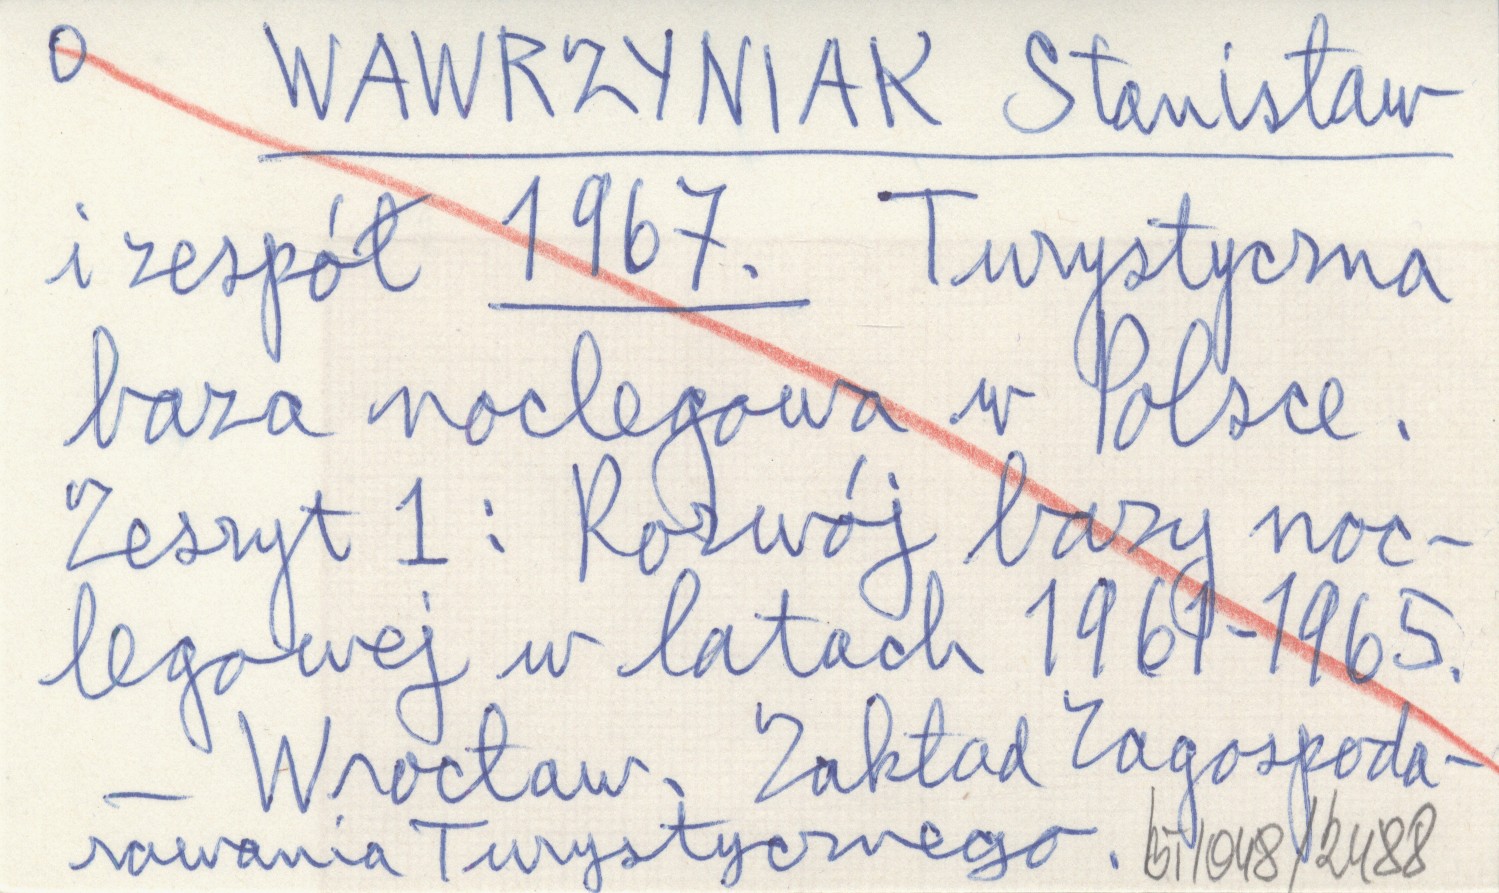 O WAWRZYNIAK Stanisław
i zespół 1967. Turystyczna
baza noclegowa w Polsce.
Zeszyt 1: Rozwój bazy noc-
legowej w latach 1961-1965.
— Wrocław, Zakład Zagospoda-
rowania Turystycznego. bT/048/2488